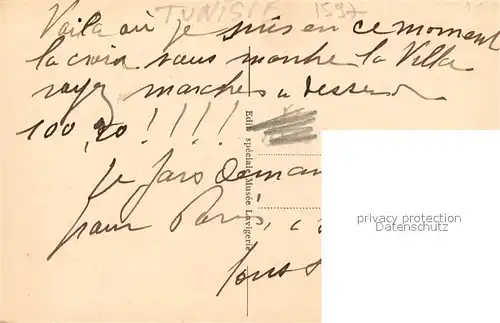 TUNISIE 1597
Voila où je suis en ce moment
la croix vous montre la Villa
voyez marches a dessendre
100,20 !!!!
Je pars demain
pour Paris, a
tous
Edit. spéciale Musée Lavigerie
privacy protection
Datenschutz